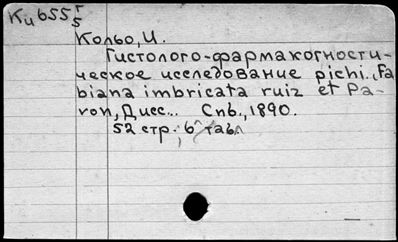 Ки655 г/5
Кольо, И.
Гистолого-фармакогности-
ческое исследование pichi. Fa-
biana imbricata ruiz et Pa-
ron, Дисс... Спб., 1890.
52 стр.; 6 табл